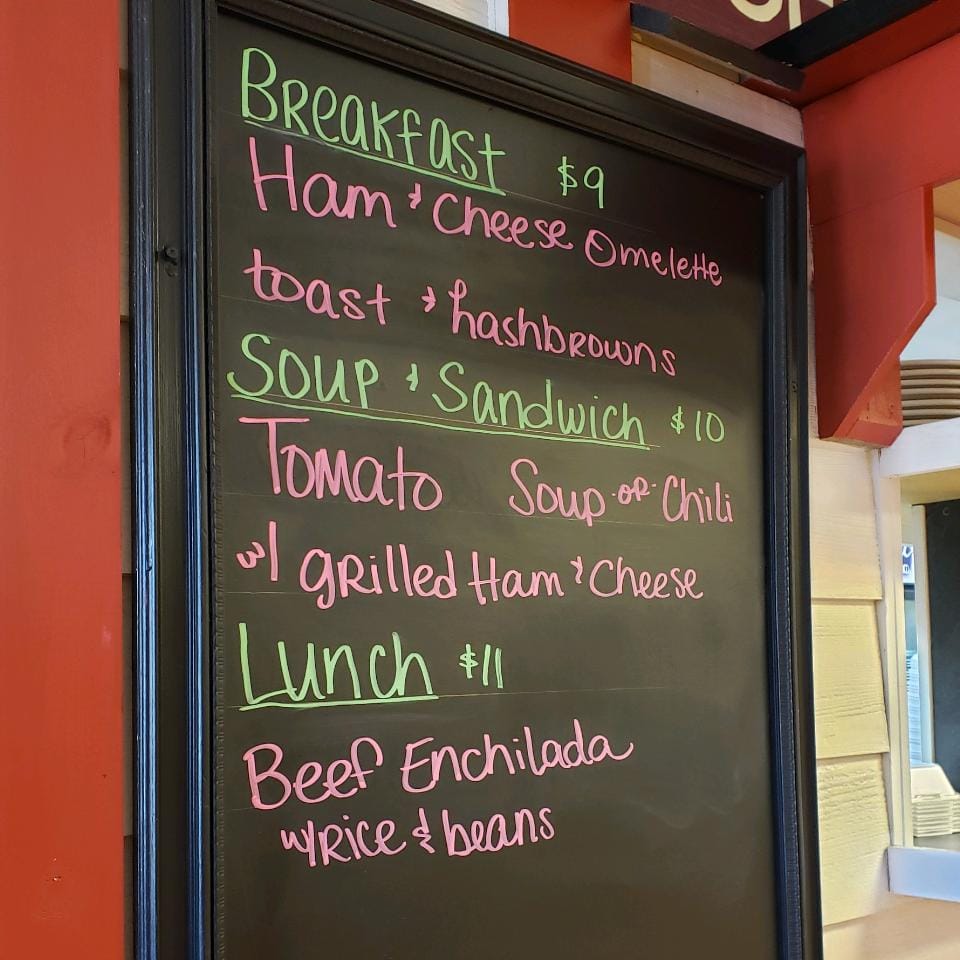 Breakfast $9
Ham & Cheese Omelette
toast & hashbrowns
Soup & Sandwich $10
Tomato Soup or Chili
w/ grilled Ham & Cheese
Lunch $11
Beef Enchilada
w/ Rice & beans